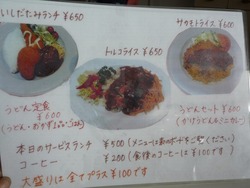 いしだたみランチ ¥650
トルコライス ¥650
サカモトライス ¥600
うどん定食
¥600
(うどん・おかず2品・ごはん)
うどんセット ¥600
(かけうどん&ミニカレー)
本日のサービスランチ ¥500(メニューは表のボードをご覧ください)
コーヒー ¥200(食後のコーヒーは¥100です)
大盛りは全てプラス¥100です